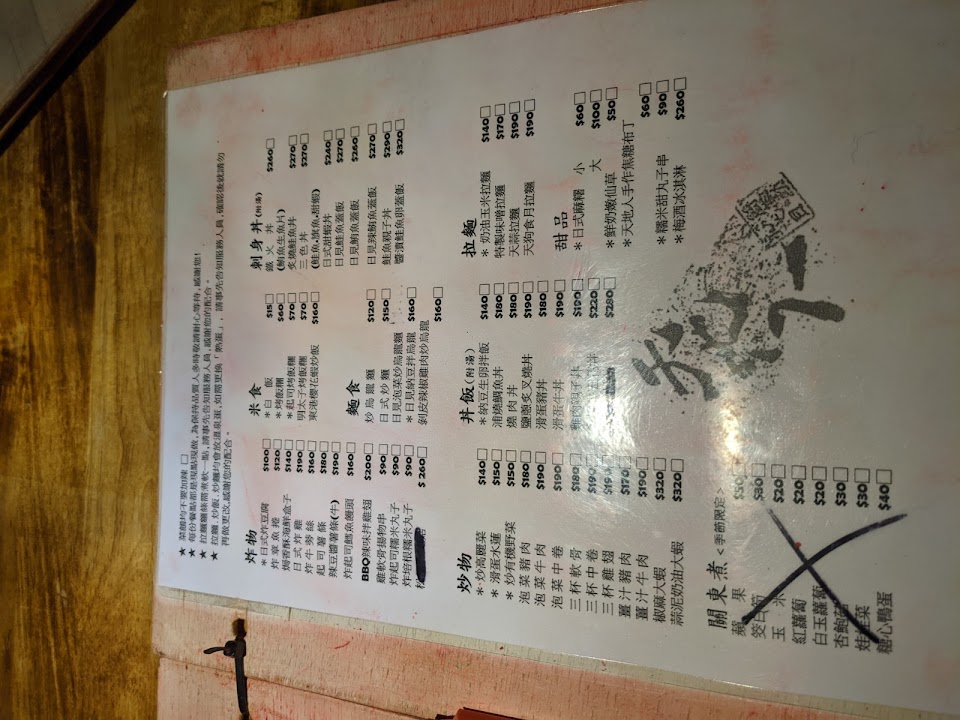 ★ 菜餚均不要加辣 □
★ 每份餐點都是現點現做,為保持品質人多時敬請耐心等待,感謝您!
★ 拉麵麵條需煮軟一點,請事先告知服務人員,感謝您的配合。
★ 拉麵、炒飯、炒麵均會放溫泉蛋,如需更換「熟蛋」,請事先告知服務人員,確認後就請勿
再做更改,感謝您的配合。
炸物
*日式炸豆腐 $100□
炸章魚捲 $120□
焗香酥海鮮盒子 $140□
日式炸雞 $190□
炸牛蒡絲 $160□
起司薯條 $180□
辣豆醬薯條(牛) $190□
炸起司鱈魚饅頭 $160□
BBQ辣味拌雞翅 $200□
雞軟骨揚物串 $90□
炸起司糯米丸子 $90□
炸培根糯米丸子 $90□
$260□
米食
*白飯 $15□
*烤飯糰 $60□
*起司烤飯糰 $70□
明太子烤飯糰 $70□
東港櫻花蝦炒飯 $160□
麵食
炒烏龍麵 $120□
日式炒麵 $150□
日見泡菜炒烏龍麵
*日見納豆拌烏龍 $160□
剝皮辣椒雞肉炒烏龍 $160□
刺身丼(附湯)
鐵火丼 $260□
(鮪魚生魚片)
炙燒鮭魚丼 $270□
三色丼 $270□
(鮭魚.旗魚.甜蝦)
日式甜蝦丼 $240□
日見鮭魚蓋飯 $270□
日見鮪魚蓋飯 $260□
日見辣鮪魚蓋飯 $270□
鮭魚親子丼 $290□
醬漬鮭魚卵蓋飯 $320□
炒物
*炒高麗菜 $140□
*滑蛋水蓮 $150□
*炒有機野菜 $150□
泡菜豬肉 $180□
泡菜牛肉 $190□
泡菜中卷 $190□
三杯軟骨 $180□
三杯中卷 $190□
三杯雞翅 $190□
薑汁豬肉 $170□
薑汁牛肉 $190□
椒麻大蝦 $320□
蒜泥奶油大蝦 $320□
丼飯(附湯)
*納豆生卵拌飯 $140□
浦燒鯛魚丼 $180□
燒肉丼 $180□
鹽蔥叉燒丼 $190□
滑蛋豬丼 $180□
滑蛋牛丼 $190□
雞肉親子丼 $190□
$220□
$280□
拉麵
*奶油玉米拉麵 $140□
特製味噌拉麵 $170□
天蒜拉麵 $190□
天狗食月拉麵 $190□
甜品
*日式麻糬 小 $60□
大 $100□
*鮮奶嫩仙草 $50□
*天地人手作焦糖布丁 $60□
*糯米甜丸子串 $90□
*梅酒冰淇淋 $260□
關東煮<季節限定>
蘋果 $30□
筊白筍 $80□
玉米 $20□
紅蘿蔔 $20□
白玉蘿蔔 $20□
杏鮑菇 $30□
娃娃菜 $30□
糖心鴨蛋 $40□